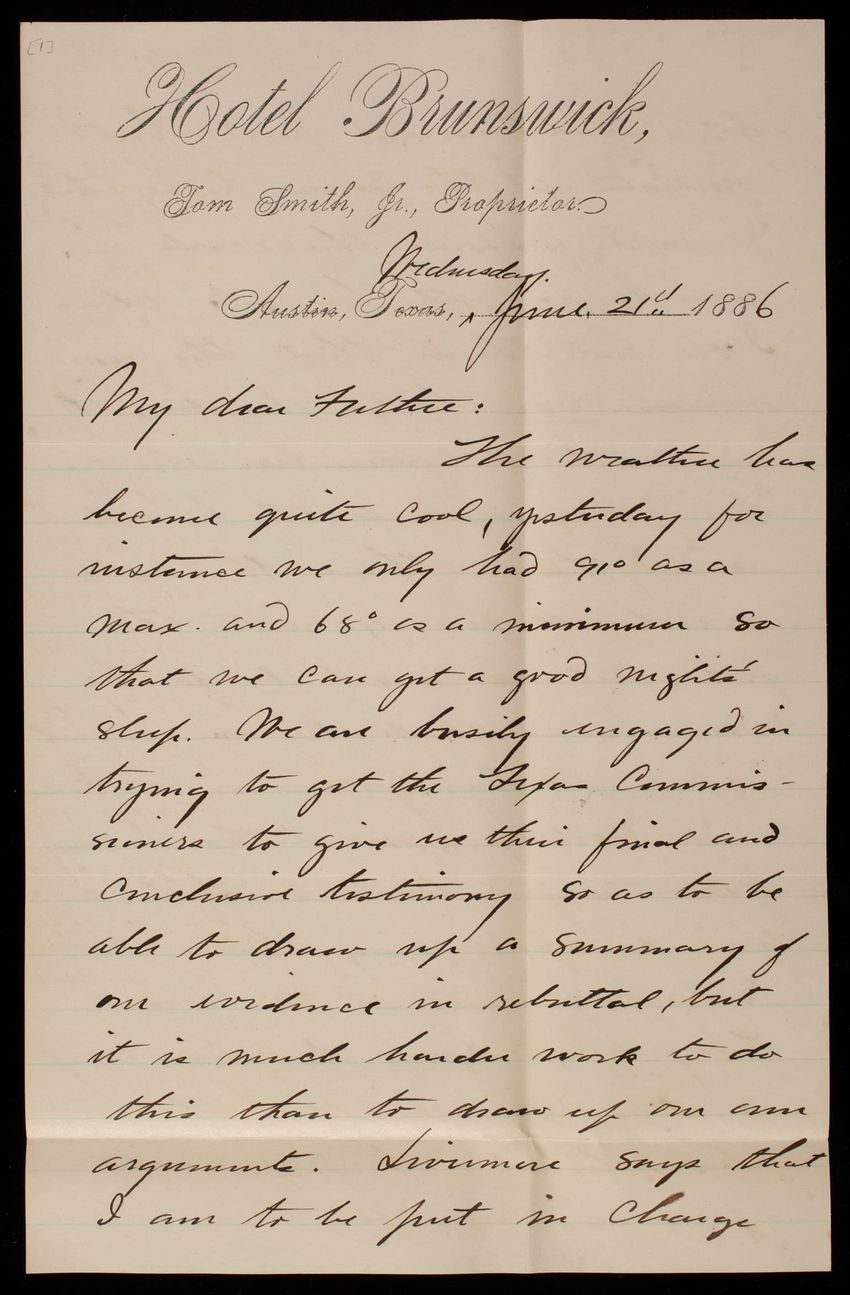 [1]
Hotel Brunswick,
Tom Smith, Jr., Proprietor.
Wednesday.
Austin, Texas, June 21d 1886
My dear Father:
The weather has
become quite cool, yesterday for
instance we only had 91° as a
max. and 68° as a minimum so
that we can get a good night's
sleep. We are busily engaged in
trying to get the Texas Commis-
sioners to give us their final and
conclusive testimony so as to be
able to draw up a summary of
our evidence in rebuttal, but
it is much harder work to do
this than to draw up our own
arguments. Livermore says that
I am to be put in charge